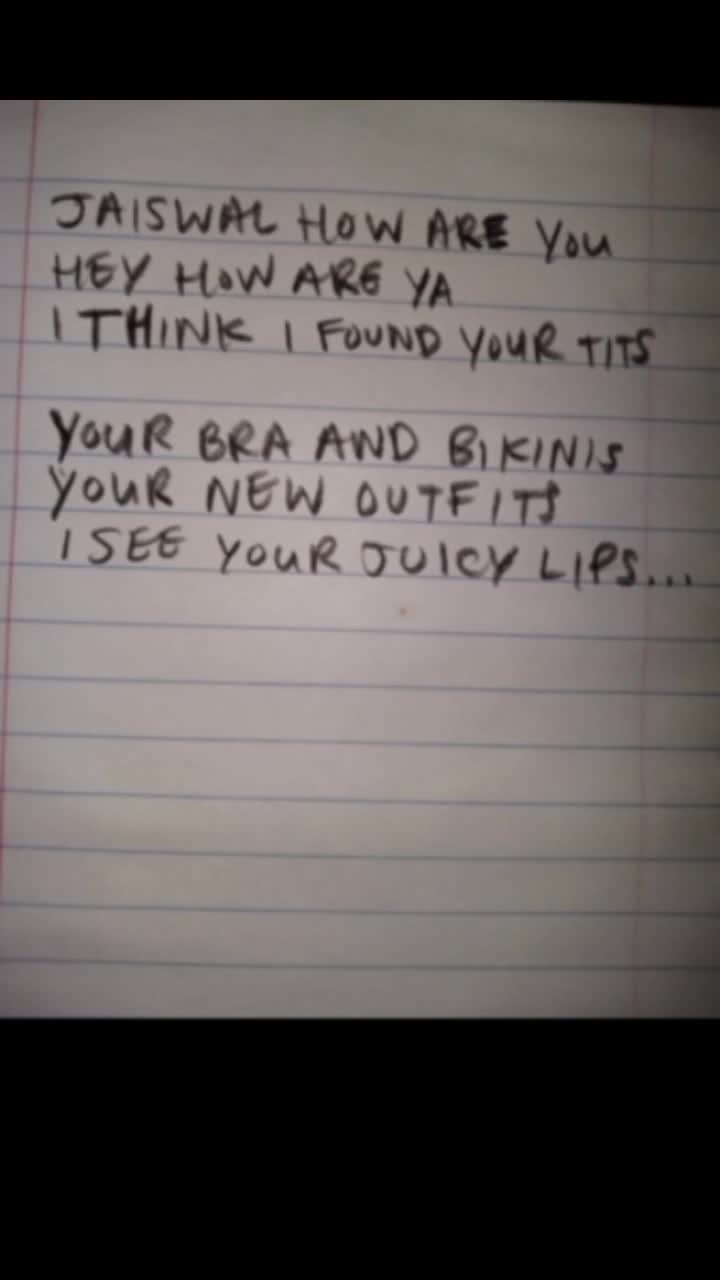 JAISWAL HOW ARE YOU
HEY HOW ARE YA
I THINK I FOUND YOUR TITS
YOUR BRA AND BIKINIS
YOUR NEW OUTFITS
I SEE YOUR JUICY LIPS...